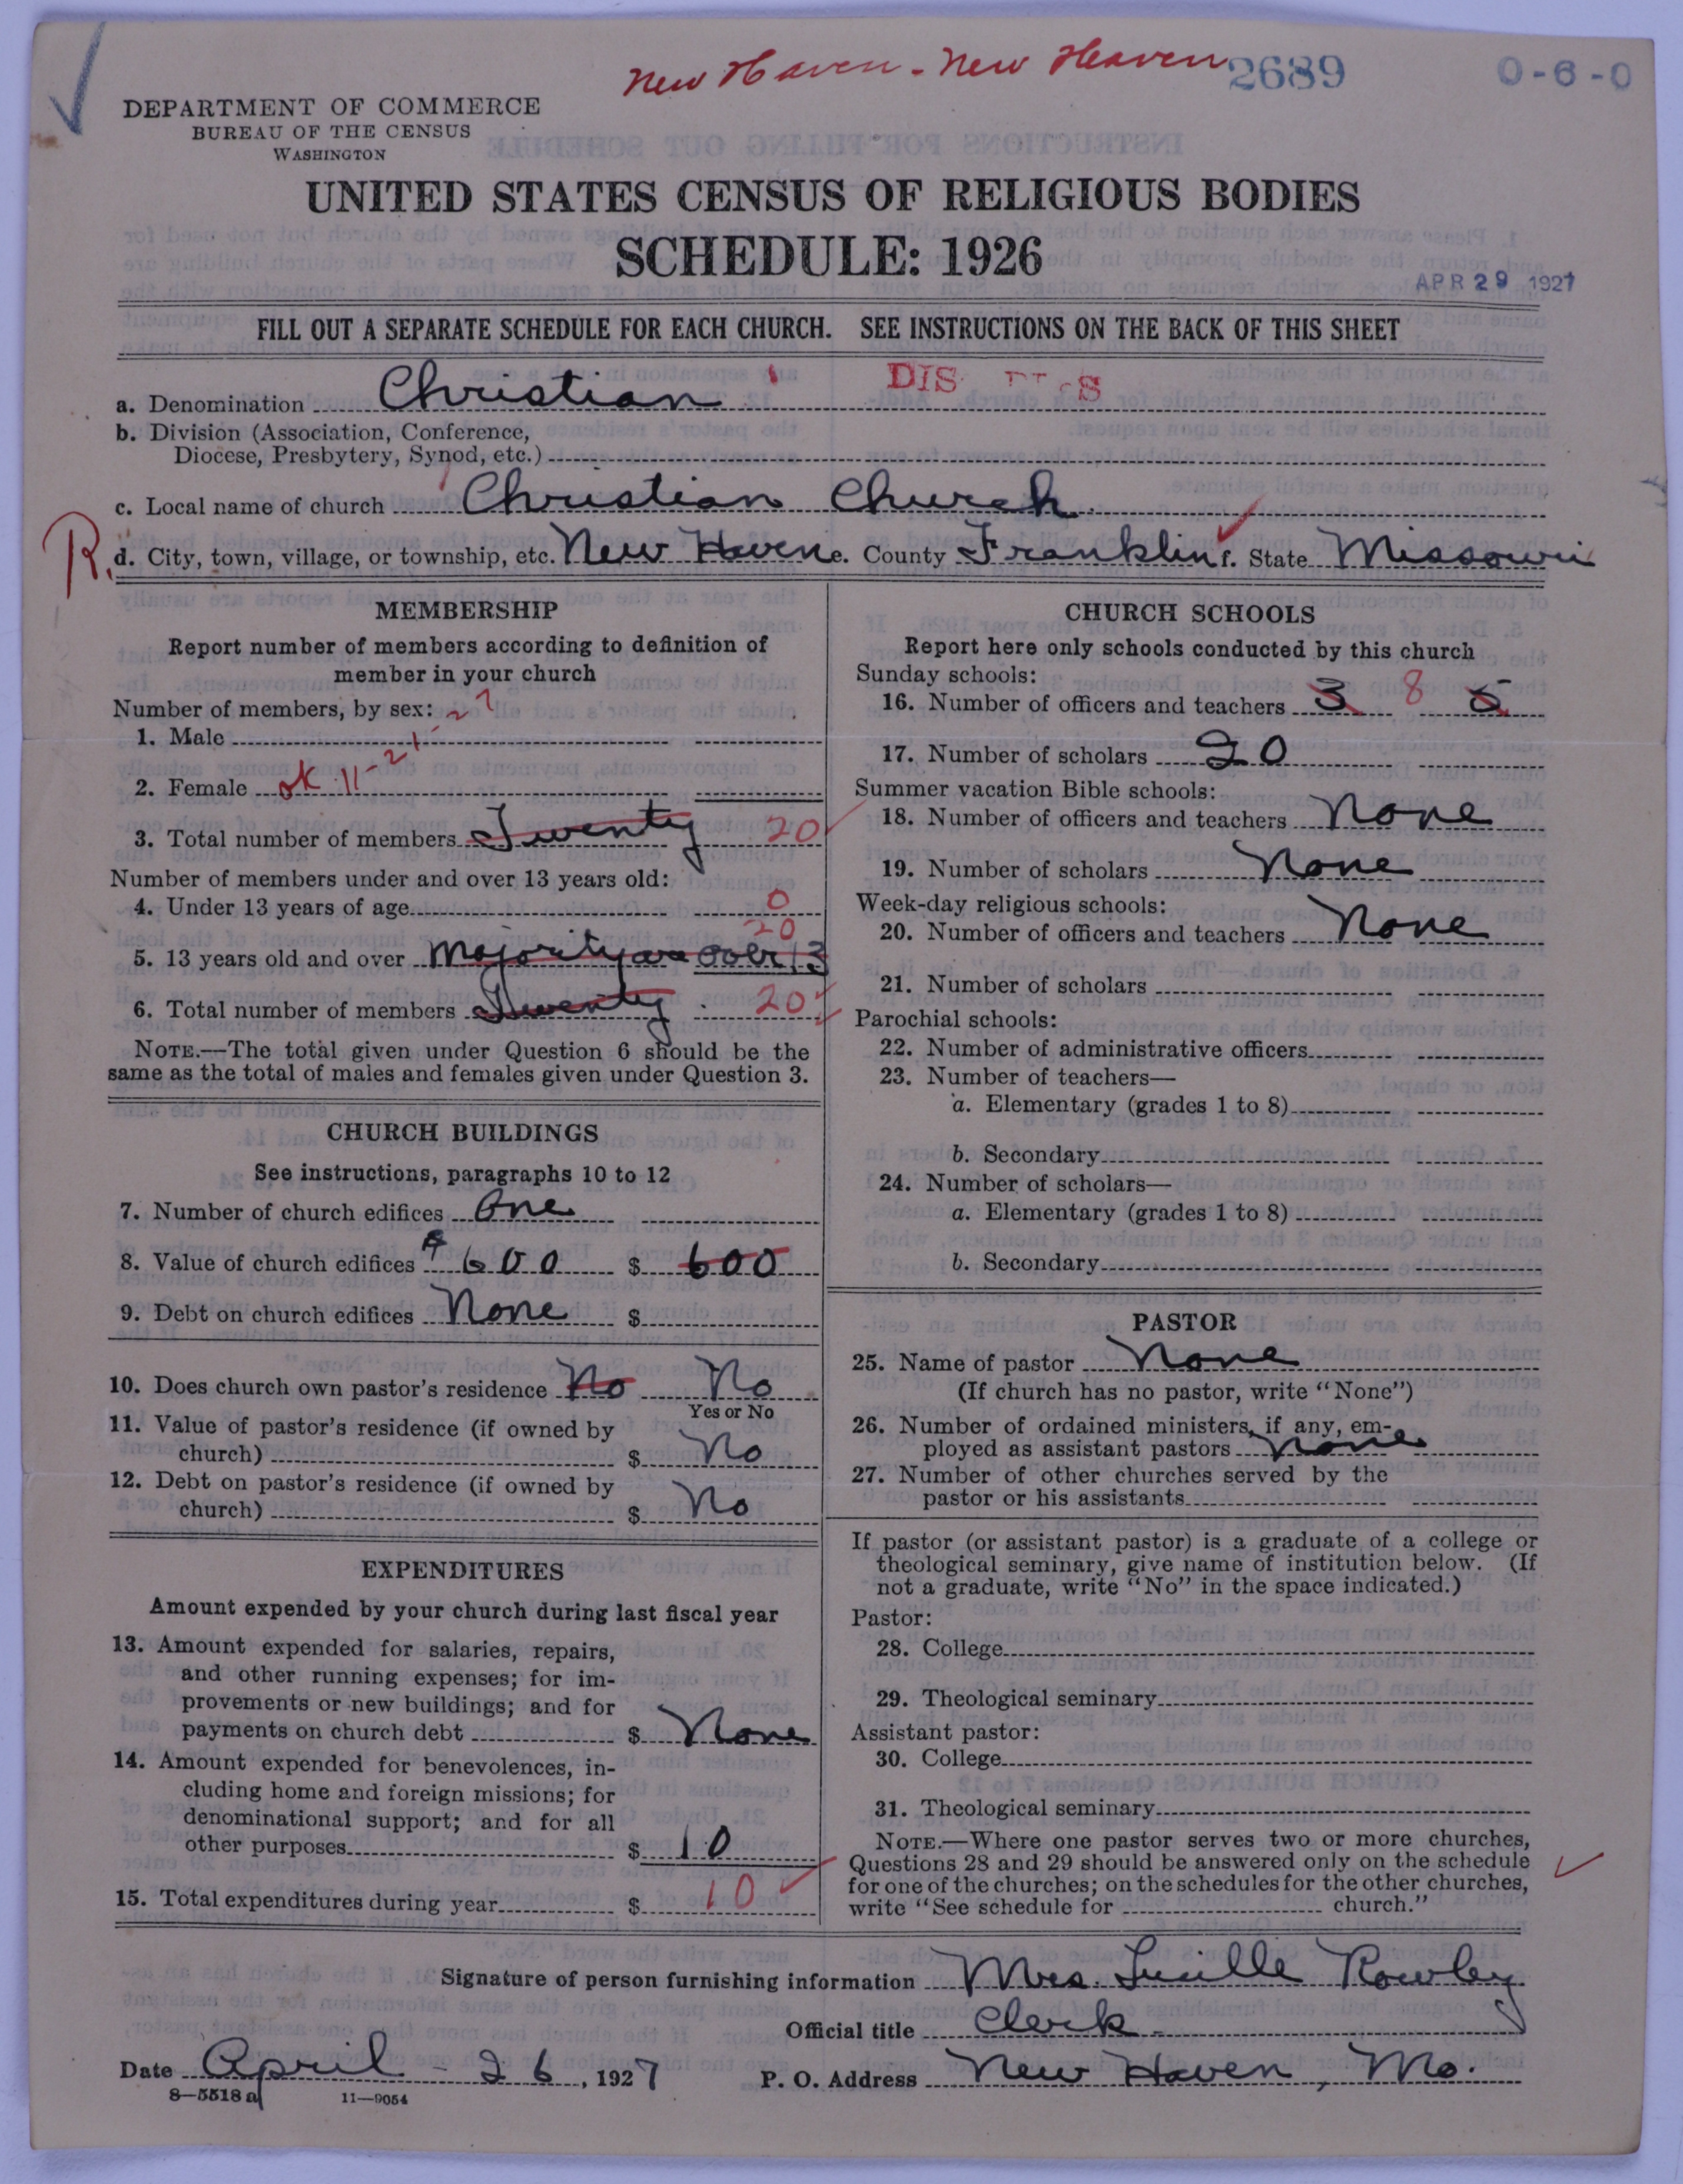 New Haven - New Heaven 2689 0-6-0
DEPARTMENT OF COMMERCE
BUREAU OF THE CENSUS
WASHINGTON
UNITED STATES CENSUS OF RELIGIOUS BODIES
SCHEDULE: 1926
APR 29 1927
FILL OUT A SEPARATE SCHEDULE FOR EACH CHURCH. SEE INSTRUCTIONS ON THE BACK OF THIS SHEET
a. Denomination Christian
b. Division (Association, Conference,
Diocese, Presbytery, Synod, etc.)
c. Local name of church Christian Church
R. d. City, town, village, or township, etc. New Haven e. County Franklin f. State Missouri
MEMBERSHIP
Report number of members according to definition of
member in your church
Number of members, by sex:
1. Male
2. Female ok 11-21-27
3. Total number of members Twenty 20
Number of members under and over 13 years old:
4. Under 13 years of age 0
20
5. 13 years old and over Majority are over 13
6. Total number of members Twenty 20
NOTE.—The total given under Question 6 should be the
same as the total of males and females given under Question 3.
CHURCH BUILDINGS
See instructions, paragraphs 10 to 12
7. Number of church edifices One
8. Value of church edifices $600 $ 600
9. Debt on church edifices None $
10. Does church own pastor's residence No No
Yes or No
11. Value of pastor's residence (if owned by
church) $ No
12. Debt on pastor's residence (if owned by
church) $ No
EXPENDITURES
Amount expended by your church during last fiscal year
13. Amount expended for salaries, repairs,
and other running expenses; for im-
provements or new buildings; and for
payments on church debt $ None
14. Amount expended for benevolences, in-
cluding home and foreign missions; for
denominational support; and for all
other purposes $ 10
15. Total expenditures during year $ 10
CHURCH SCHOOLS
Report here only schools conducted by this church
Sunday schools:
16. Number of officers and teachers 3 8 5
17. Number of scholars 20
Summer vacation Bible schools:
18. Number of officers and teachers None
19. Number of scholars None
Week-day religious schools:
20. Number of officers and teachers None
21. Number of scholars
Parochial schools:
22. Number of administrative officers
23. Number of teachers—
a. Elementary (grades 1 to 8)
b. Secondary
24. Number of scholars—
a. Elementary (grades 1 to 8)
b. Secondary
PASTOR
25. Name of pastor None
(If church has no pastor, write "None")
26. Number of ordained ministers, if any, em-
ployed as assistant pastors None
27. Number of other churches served by the
pastor or his assistants
If pastor (or assistant pastor) is a graduate of a college or
theological seminary, give name of institution below. (If
not a graduate, write "No" in the space indicated.)
Pastor:
28. College
29. Theological seminary
Assistant pastor:
30. College
31. Theological seminary
NOTE.—Where one pastor serves two or more churches,
Questions 28 and 29 should be answered only on the schedule
for one of the churches; on the schedules for the other churches,
write "See schedule for church."
Signature of person furnishing information Mrs. Lucille Rowley
Official title Clerk
Date April 26, 1927 P. O. Address New Haven, Mo.
8—5518 a 11—9054